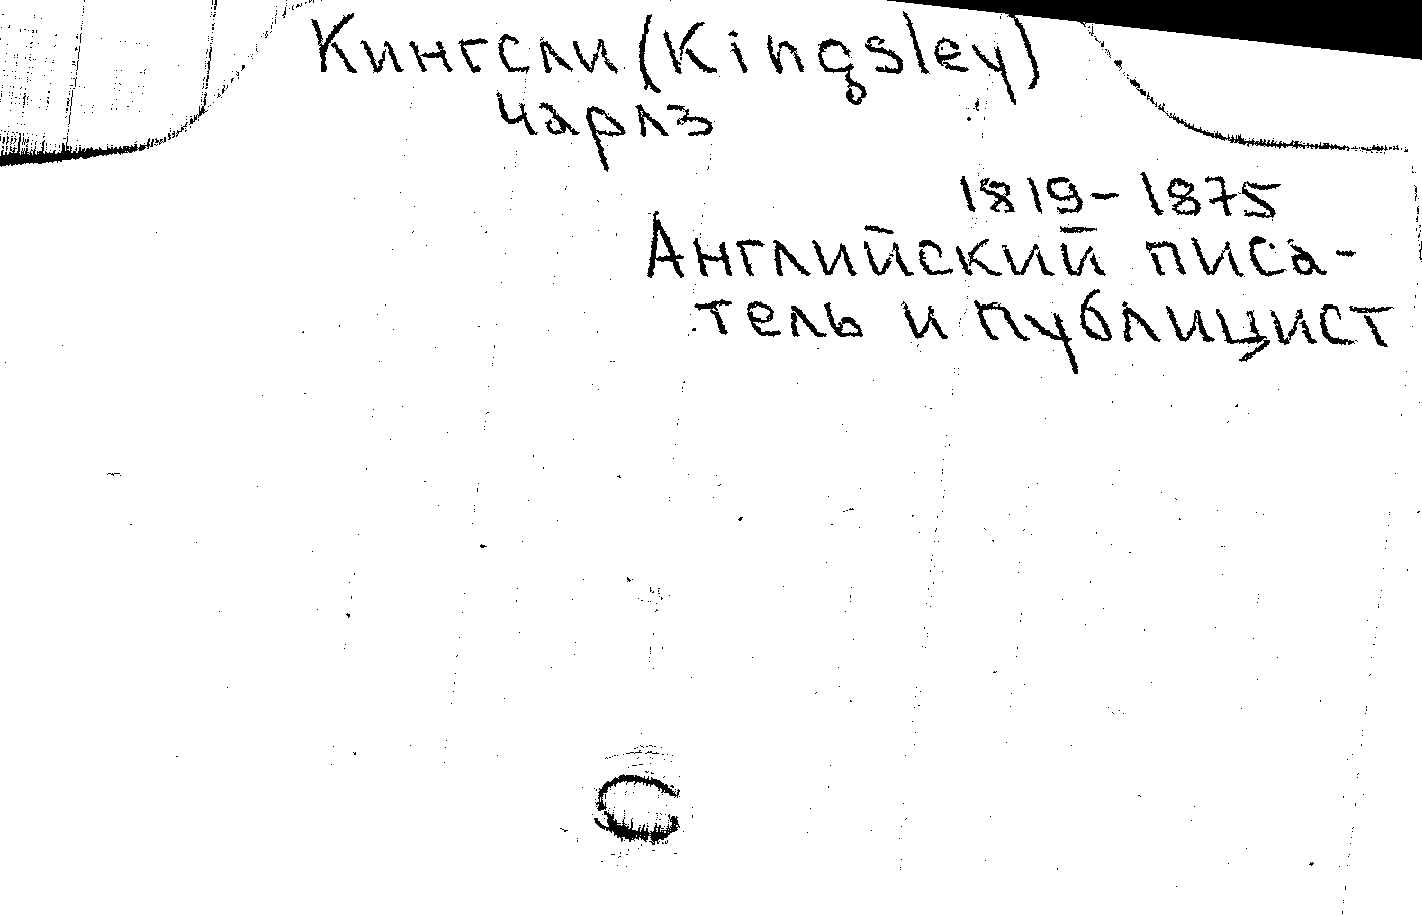 Кингсли (Kingsley)
Чарлз
1819-1875
Английский писа-
тель и публицист